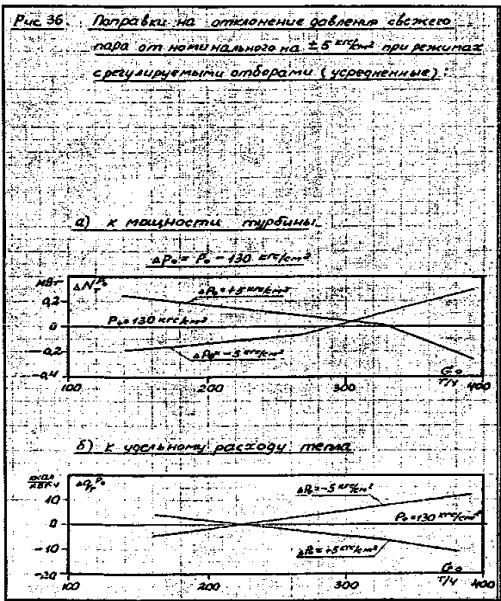 Рис 36 Поправки на отклонение давления свежего
пара от номинального на ±5 кгс/см² при режимах
с регулируемыми отборами (усредненные):
а) к мощности турбины
ΔP₀ = P₀ - 130 кгс/см²
МВт ΔNтP₀
ΔP₀ = +5 кгс/см²
0,2
P₀ = 130 кгс/см²
0
-0,2
ΔP₀ = -5 кгс/см²
-0,4
G₀
т/ч
100 200 300 400
б) к удельному расходу тепла
ккал
кВт·ч
ΔqтP₀
ΔP₀ = -5 кгс/см²
10
P₀ = 130 кгс/см²
0
-10
ΔP₀ = +5 кгс/см²
-20
G₀
т/ч
100 200 300 400